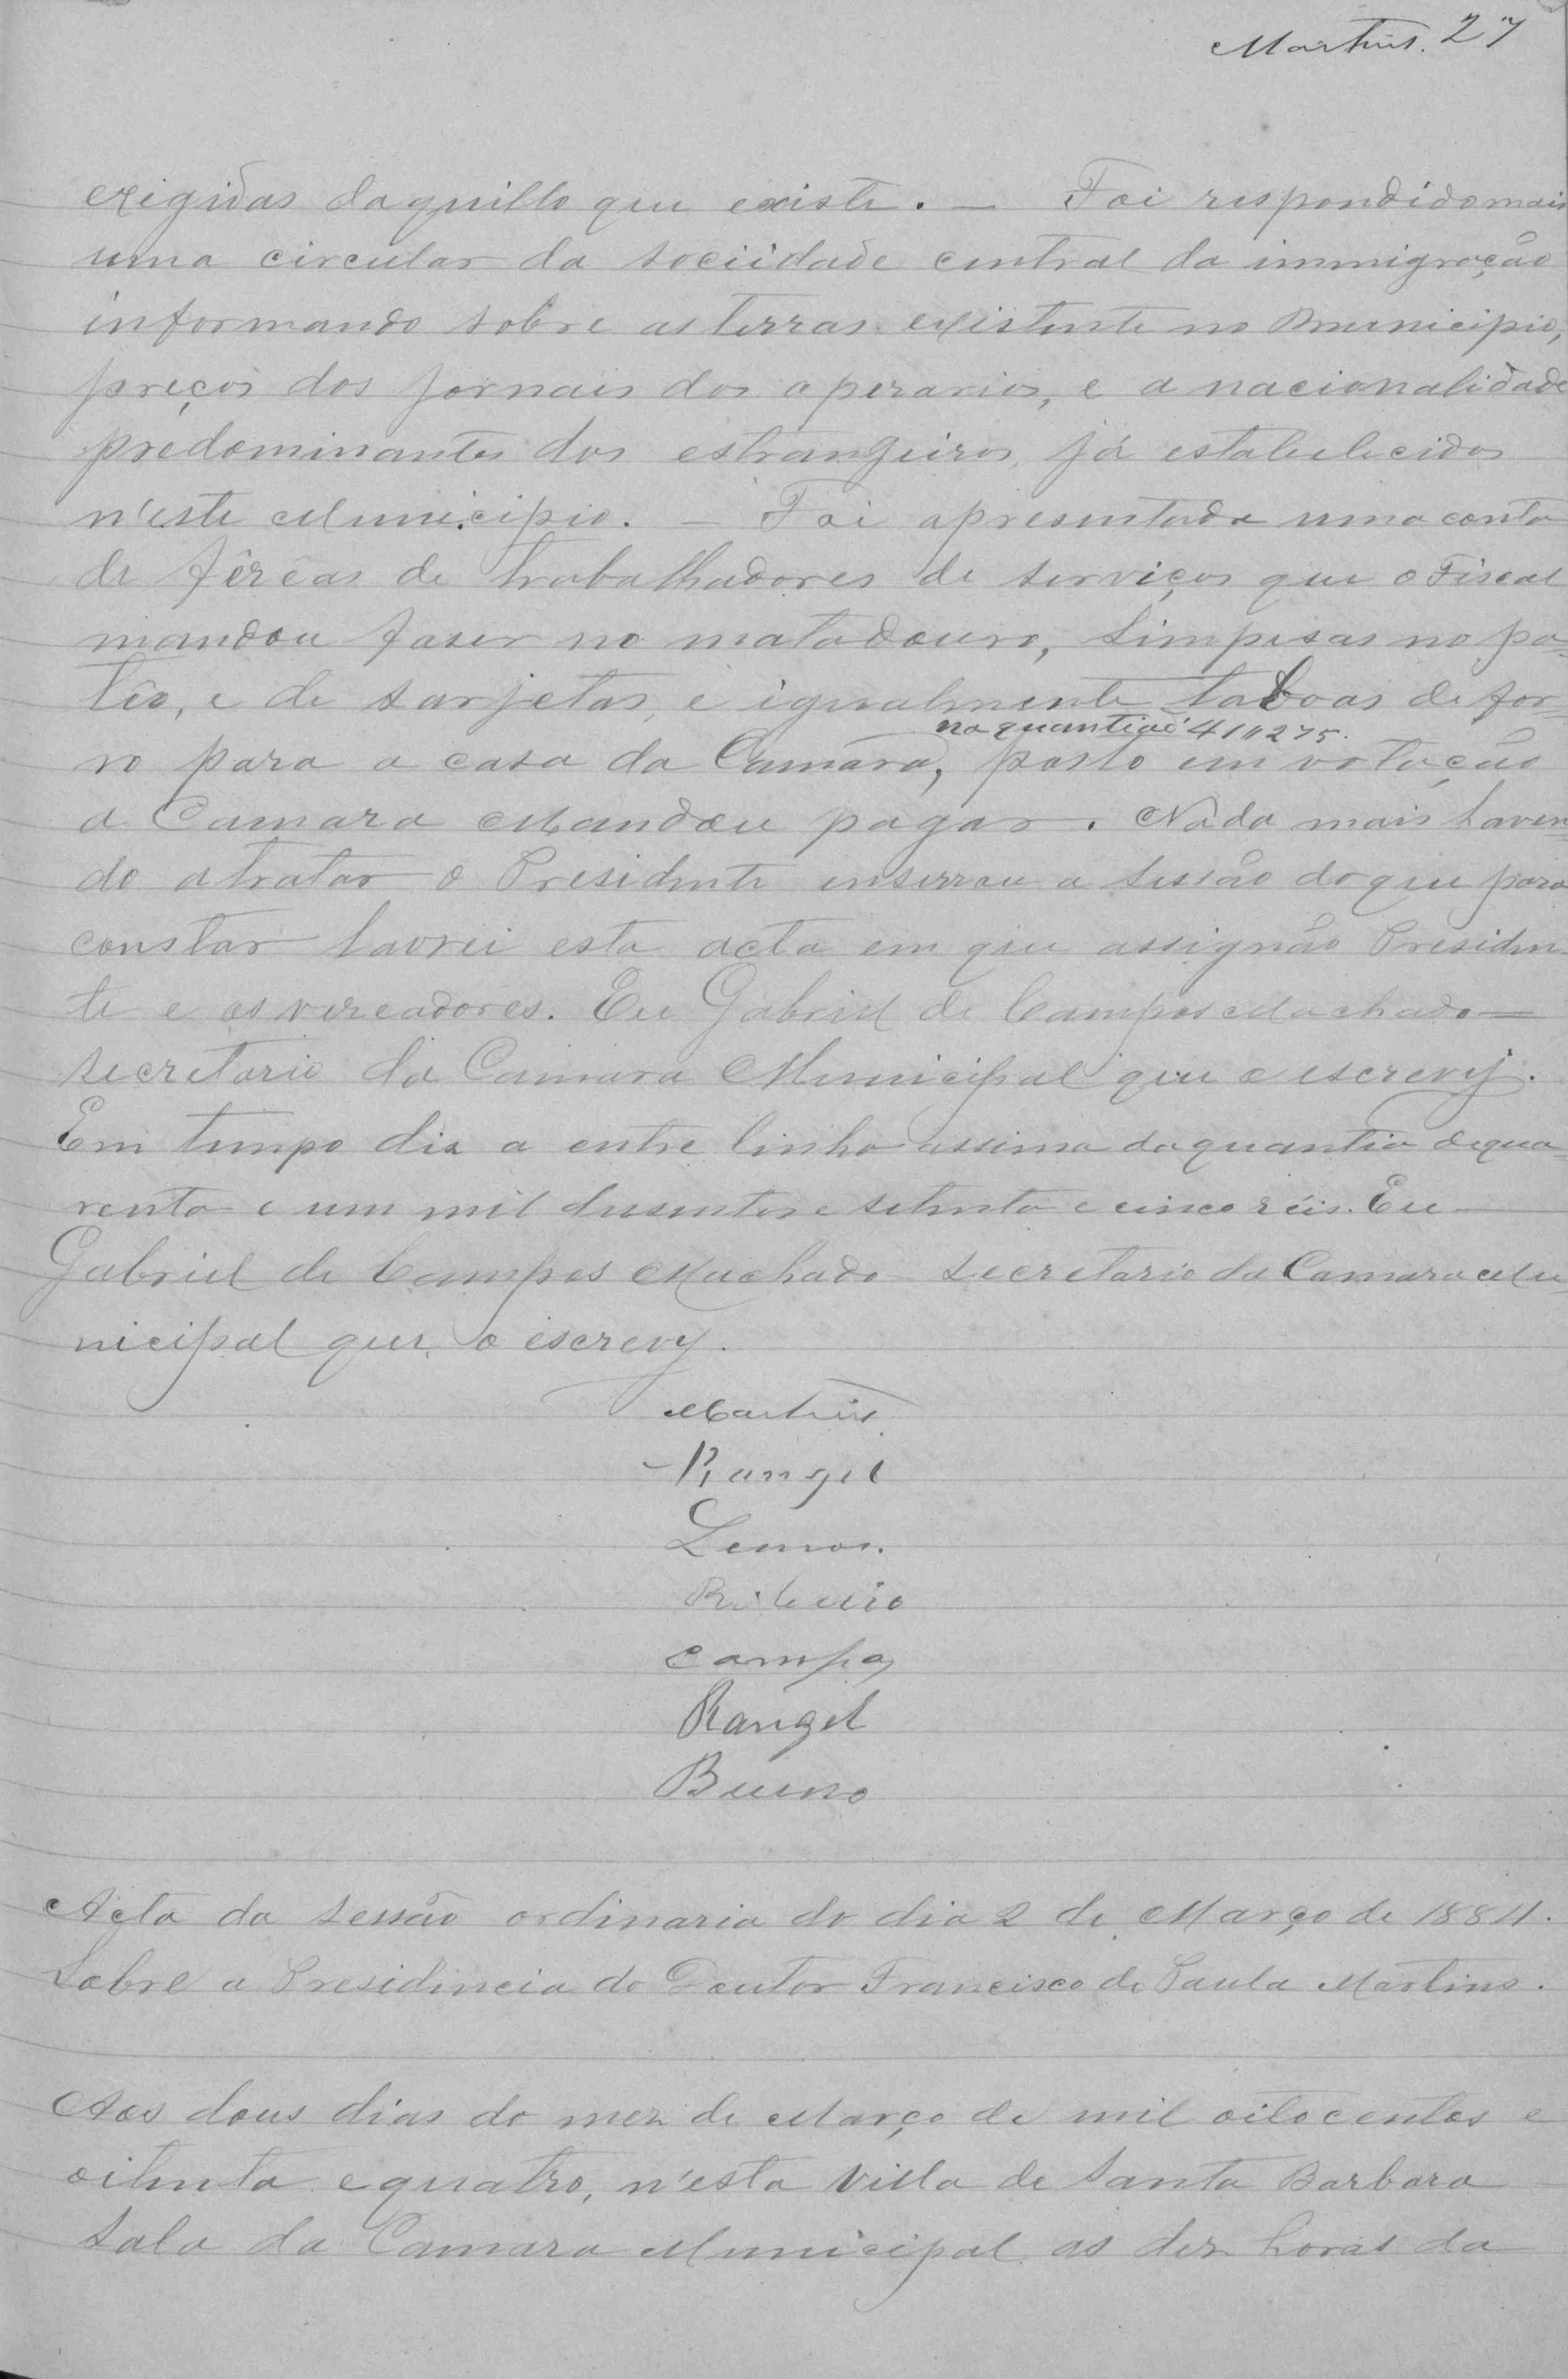 Martins. 27
exigidas daquillo que existe. — Foi respondido mais
uma circular da sociidade central da immigração
informando sobre as terras existente no Municipio,
preços dos jornais dos operarios, e a nacionalidade
predominantes dos estrangeiros, já estabelecidos
n'este Municipio. — Foi apresentada uma conta
de fêrêas de trabalhadores de serviços que o Fiscal
mandou faser no matadouro, limpesas no pa=
teo, e de sarjetas, e igualmente taboas de for=
na quantia d' 41$275.
ro para a casa da Camara, posto em votação
a Camara Mandou pagar. Nada mais haven=
do a tratar o Presidente enserrou a sessão do que para
constar lavrei esta acta em que assignão Presiden=
te e os vereadores. Eu Gabriel de Campos Machado —
secretario da Camara Municipal que o escrevy.
Em tempo dis a entre linha assima da quantia de qua=
renta e um mil dusentos e setenta e cinco réis. Eu —
Gabriel de Campos Machado secretario da Camara Mu
nicipal que o escrevy.
Martins
Rangel
Lemos.
Ribeiro
Campos
Rangel
Bueno
Acta da sessão ordinaria do dia 2 de Março de 1884.
Sobre a Presidincia do Doutor Francisco de Paula Martins.
Aos dous dias do mez de Março de mil oitocentos e
oitenta e quatro, n'esta Villa de Santa Barbara —
sala da Camara Municipal as dez horas da